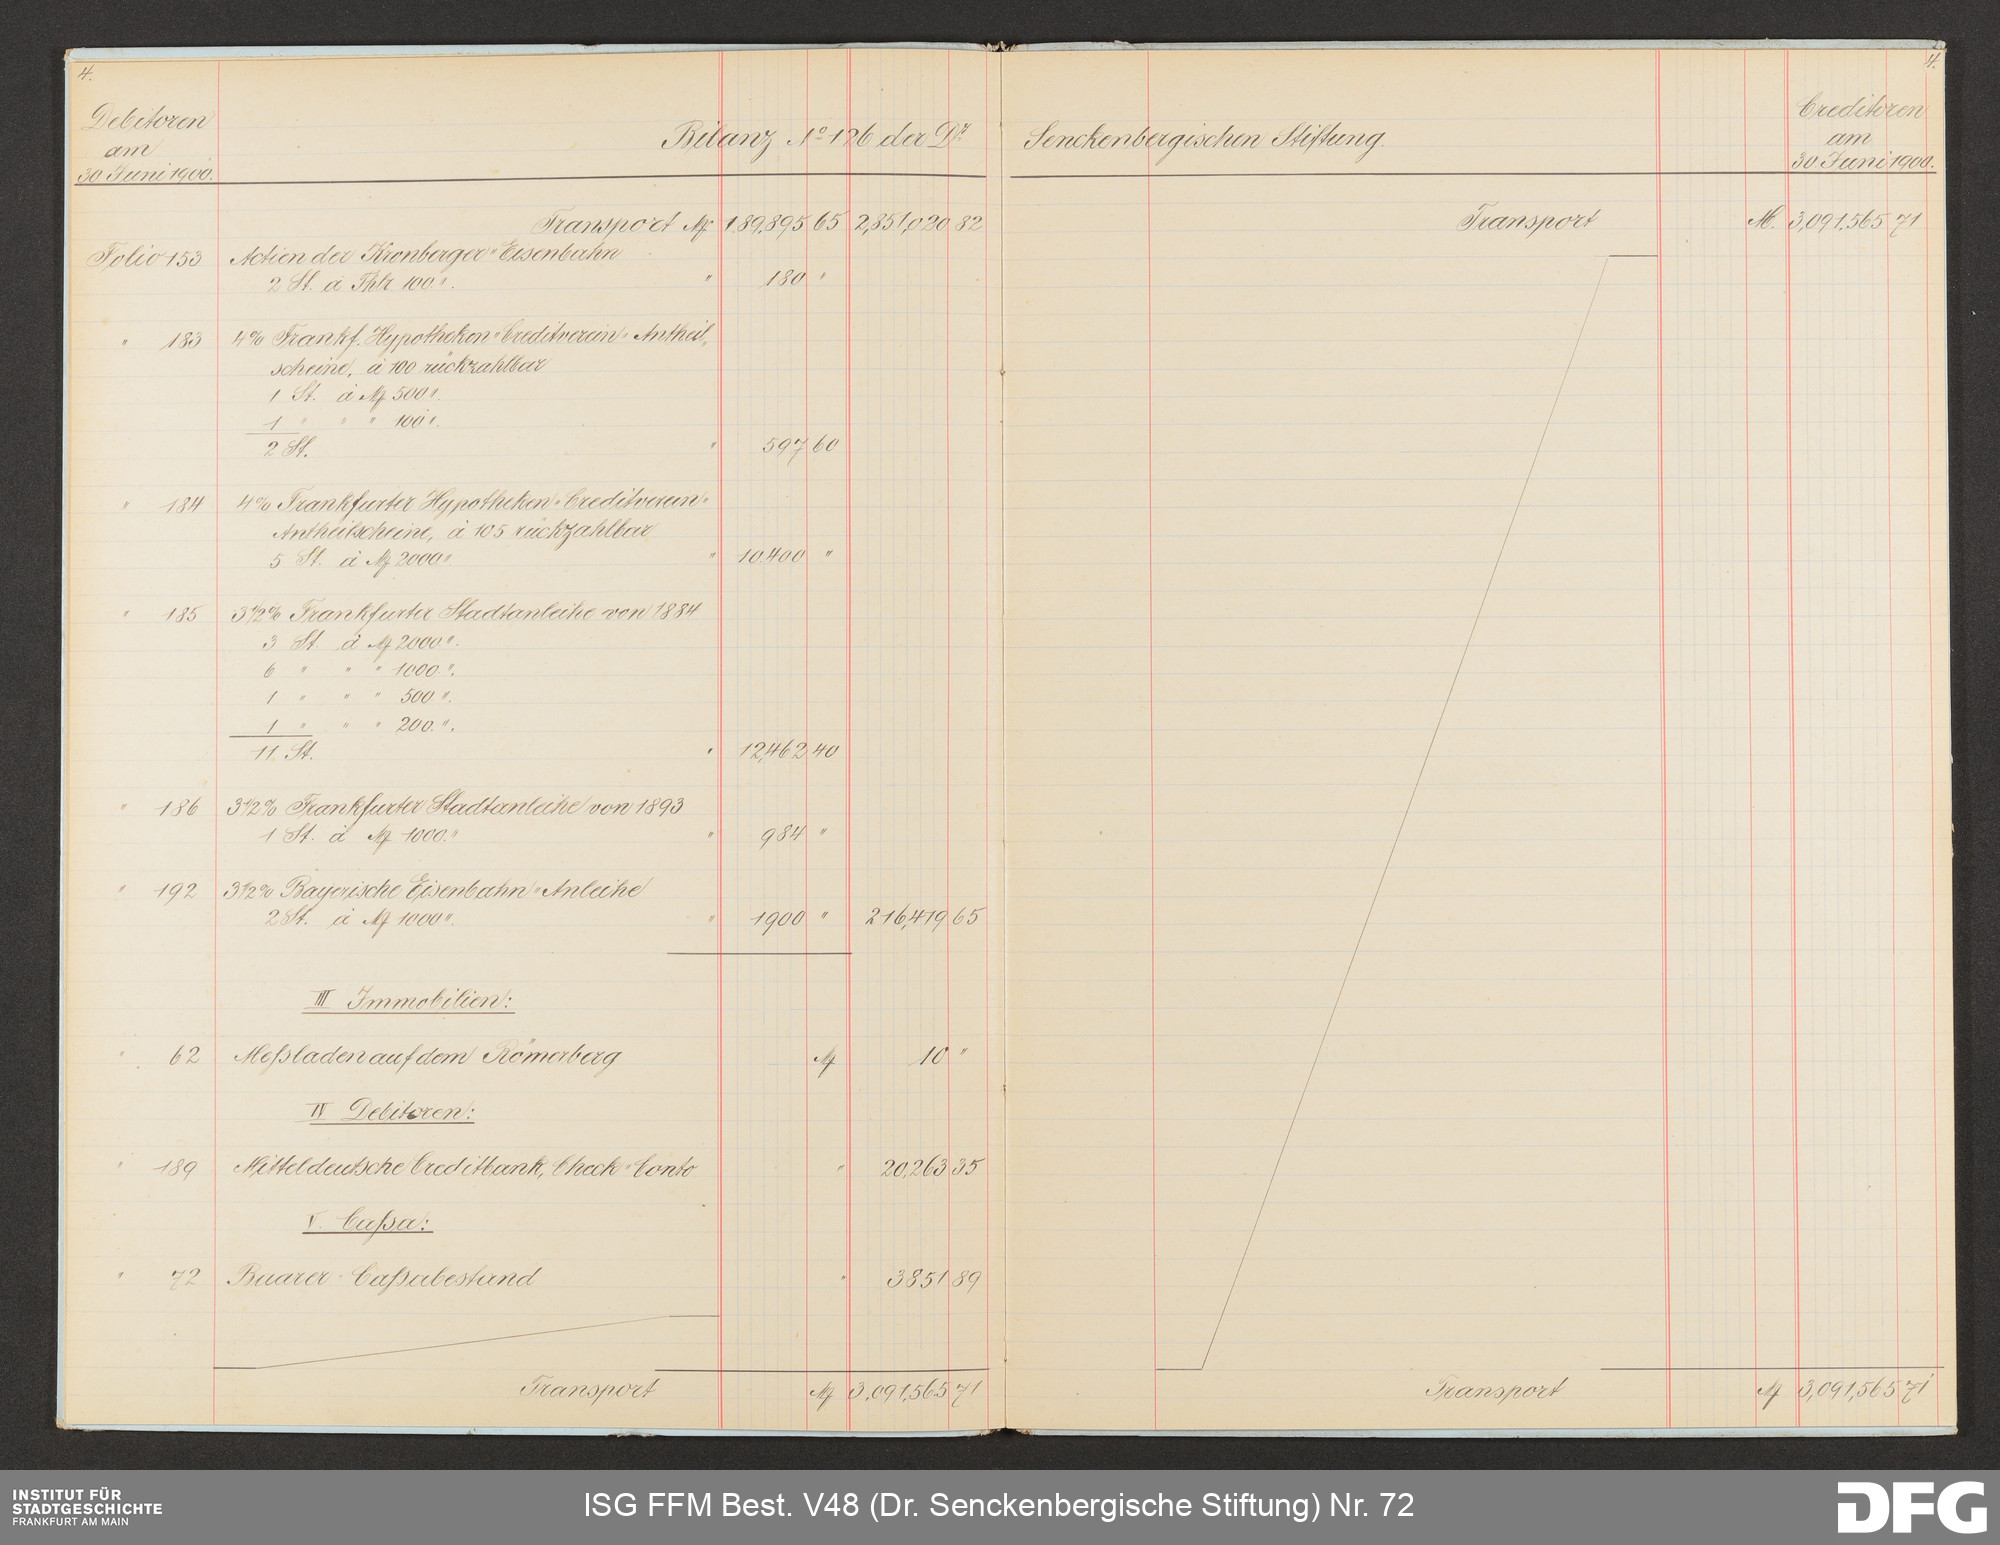 4.
Debitoren
am
30 Juni 1900.
Bilanz No 126 der Dr
Transport M 189,895 65 2,851,020 82
Folio 153 Actien der Kronberger Eisenbahn
2 St. à Thlr 100.". " 180 "
" 183 4% Frankf. Hypotheken-Creditverein-Antheil-
scheine, à 100 rückzahlbar
1 St. à M 500".
1 " " " 100".
2 St. " 597 60
" 184 4% Frankfurter Hypotheken-Creditverein-
Antheilscheine, à 105 rückzahlbar
5 St. à M 2000." " 10.400 "
" 185 3 1/2% Frankfurter Stadtanleihe von 1884
3 St. à M 2000.".
6 " " " 1000.".
1 " " " 500 ".
1 " " " 200.".
11 St. " 12,462 40
" 186 3 1/2% Frankfurter Stadtanleihe von 1893
1 St. à M 1000." " 984 "
" 192 3 1/2% Bayerische Eisenbahn-Anleihe
2 St. à M 1000". " 1900 " 216,419 65
III Immobilien:
" 62 Meßladen auf dem Römerberg M 10 "
IV Debitoren:
" 189 Mitteldeutsche Creditbank, Check-Conto " 20,263 35
V. Caßa:
" 72 Baarer Caßabestand " 3851 89
Transport M 3,091,565 71
4.
Senckenbergischen Stiftung.
Creditoren
am
30 Juni 1900.
Transport M. 3,091,565 71
Transport M 3,091,565 71
INSTITUT FÜR
STADTGESCHICHTE
FRANKFURT AM MAIN
ISG FFM Best. V48 (Dr. Senckenbergische Stiftung) Nr. 72
DFG